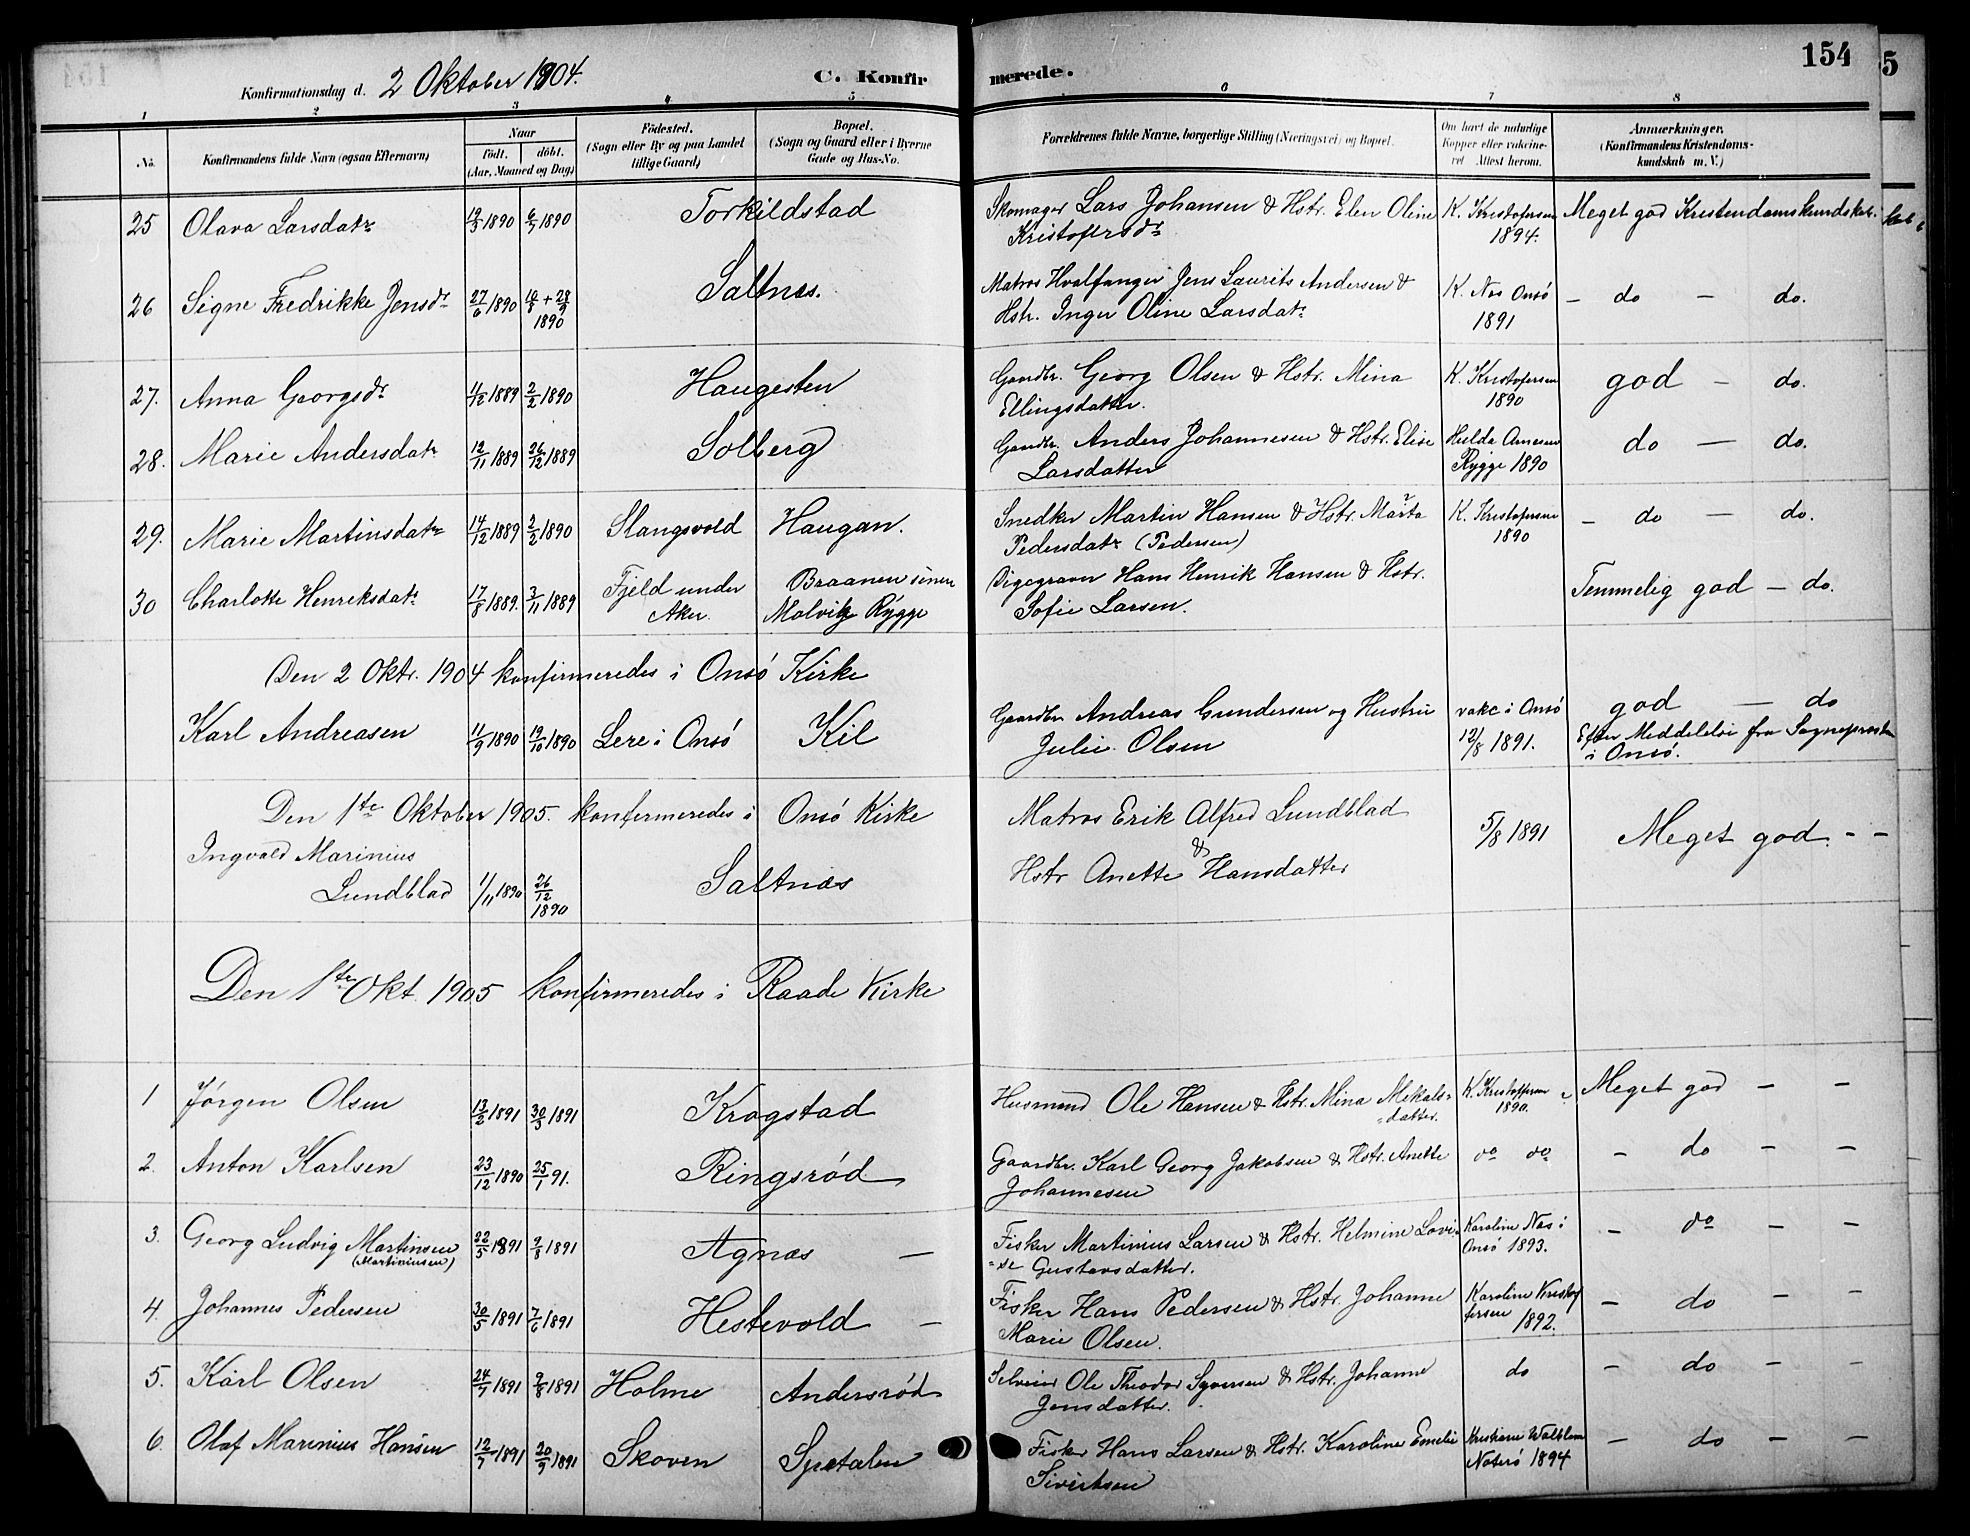 154
Konfirmationsdag d. 2 Oktober 1904.
C. Konfirmerede.
1 2 3 4 5 6 7 8
No. Konfirmandens fulde Navn (ogsaa Efternavn) Naar födt. döbt. (Aar, Maaned og Dag) Födested. (Sogn eller By og paa Landet tillige Gaard) Bopæl. (Sogn og Gaard eller i Byerne Gade og Hus-No. Forældrenes fulde Navne, borgerlige Stilling (Næringsvei) og Bopæl. Om havt de naturlige Kopper eller vakcineret. Attest herom. Anmærkninger. (Konfirmandens Kristendomskundskab m. V.)
25 Olava Larsdatr 19/3 1890 6/7 1890 Torkildstad Skomager Lars Johansen & Hstr. Elen Oline K. Kristofersen Meget god Kristendomskundskab.
Kristofersdr 1894.
26 Signe Fredrikke Jensdr 27/6 1890 10/8 + 28/9 1890 Saltnæs. Matros Hvalfanger Jens Laurits Andersen & K. Næs Onsö – do – do.
Hstr. Inger Oline Larsdatr 1891
27. Anna Georgsdr 11/12 1889 2/2 1890 Haugesten Gaardbr. Georg Olsen & Hstr. Mina K. Kristofersen god – do.
Ellingsdatter. 1890
28. Marie Andersdatr 12/11 1889 26/12 1889 Solberg Gaardbr. Anders Johannesen & Hstr. Elise Hulda Arnesen do – do.
Larsdatter Rygge 1890
29. Marie Martinsdatr 14/12 1889 2/2 1890 Slangsvold Haugan. Snedker Martin Hansen & Hstr. Märta K. Kristofersen – do – do.
Pedersdatr (Pedersen) 1890
30 Charlotte Henriksdatr 17/8 1889. 3/11 1889 Fjeld under Braanen Digegraver Hans Henrik Hansen & Hstr. Temmelig god – do.
Aker. Malvik Rygge Sofie Larsen.
Den 2 Oktr. 1904 konfirmeredes i Onsö Kirke
Karl Andreasen 11/9 1890 19/10 1890 Lere i Onsö Kil Gaardbr. Andreas Gundersen og Hustru vakc i Onsö god – do
Julie Olsen 12/8 1891. Efter Meddelelse fra Sognepresten i Onsö.
Den 1te Oktober 1905. konfirmeredes i Onsö Kirke Matros Erik Alfred Lundblad 5/8 1891 Meget god. - -
Ingvald Marinius &
Lundblad 1/11 1890 26/12 1890 Saltnæs Hstr Anette Hansdatter
Den 1te Okt. 1905 konfirmeredes i Raade Kirke
1 Jörgen Olsen 13/2 1891 30/3 1891 Krogstad Husmand Ole Hansen & Hstr. Mina Mekals= K. Kristoffersen Meget god – –
=datter. 1890.
2. Anton Karlsen 23/12 1890 25/1 91. Ringsröd Gaardbr. Karl Georg Jakobsen & Hstr. Anette do do – do – –
Johannesen
3. Georg Ludvig Martinsen 22/5 1891 9/8 1891 Agnæs – Fisker Martinius Larsen & Hstr. Helmine Lovi= Karoline Næs i – do – –
(Martiniusen) =se Gustavsdatter. Onsö 1893.
4. Johannes Pedersen 30/5 1891 7/6 1891 Hestevold – Fisker Hans Pedersen & Hstr. Johanne Karoline Kristof – do – –
Marie Olsen. fersen 1892.
5. Karl Olsen 24/7 1891 9/8 1891 Holme Andersröd Selveier Ole Theodor Syversen & Hstr. Johanne do – do – –
Jensdatter.
6. Olaf Marinius Hansen 12/7 1891 20/9 1891 Skoven Spetalen Fisker Hans Larsen & Hstr. Karoline Emelie Kristiane – do – –
Sivertsen Nöterö 1894